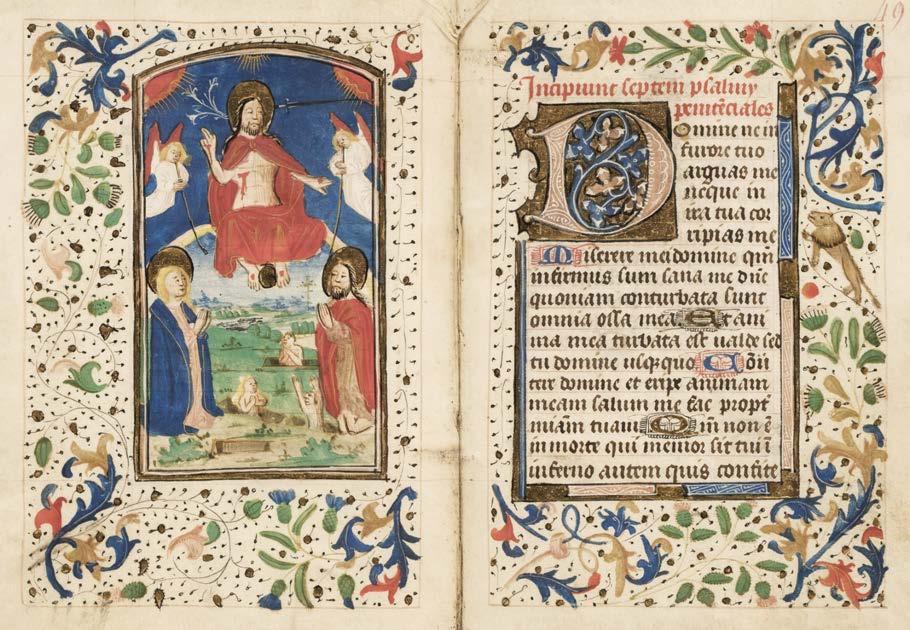 49
Incipiunt septem psalmi
penite̅ciales
Domine ne in
furore tuo
arguas me
neque in
ira tua cor
ripias me
Miserere mei domine qm̅
infirmus sum sana me dn̅e
quoniam conturbata sunt
omnia ossa mea Et ani
ma mea turbata est ualde sed
tu domine usq̅quo Co̅u̅
tere domine et eripe animam
meam saluum me fac propt̅
mia̅m tuam Qm̅ non e̅
in morte qui memor sit tui
inferno autem quis confite